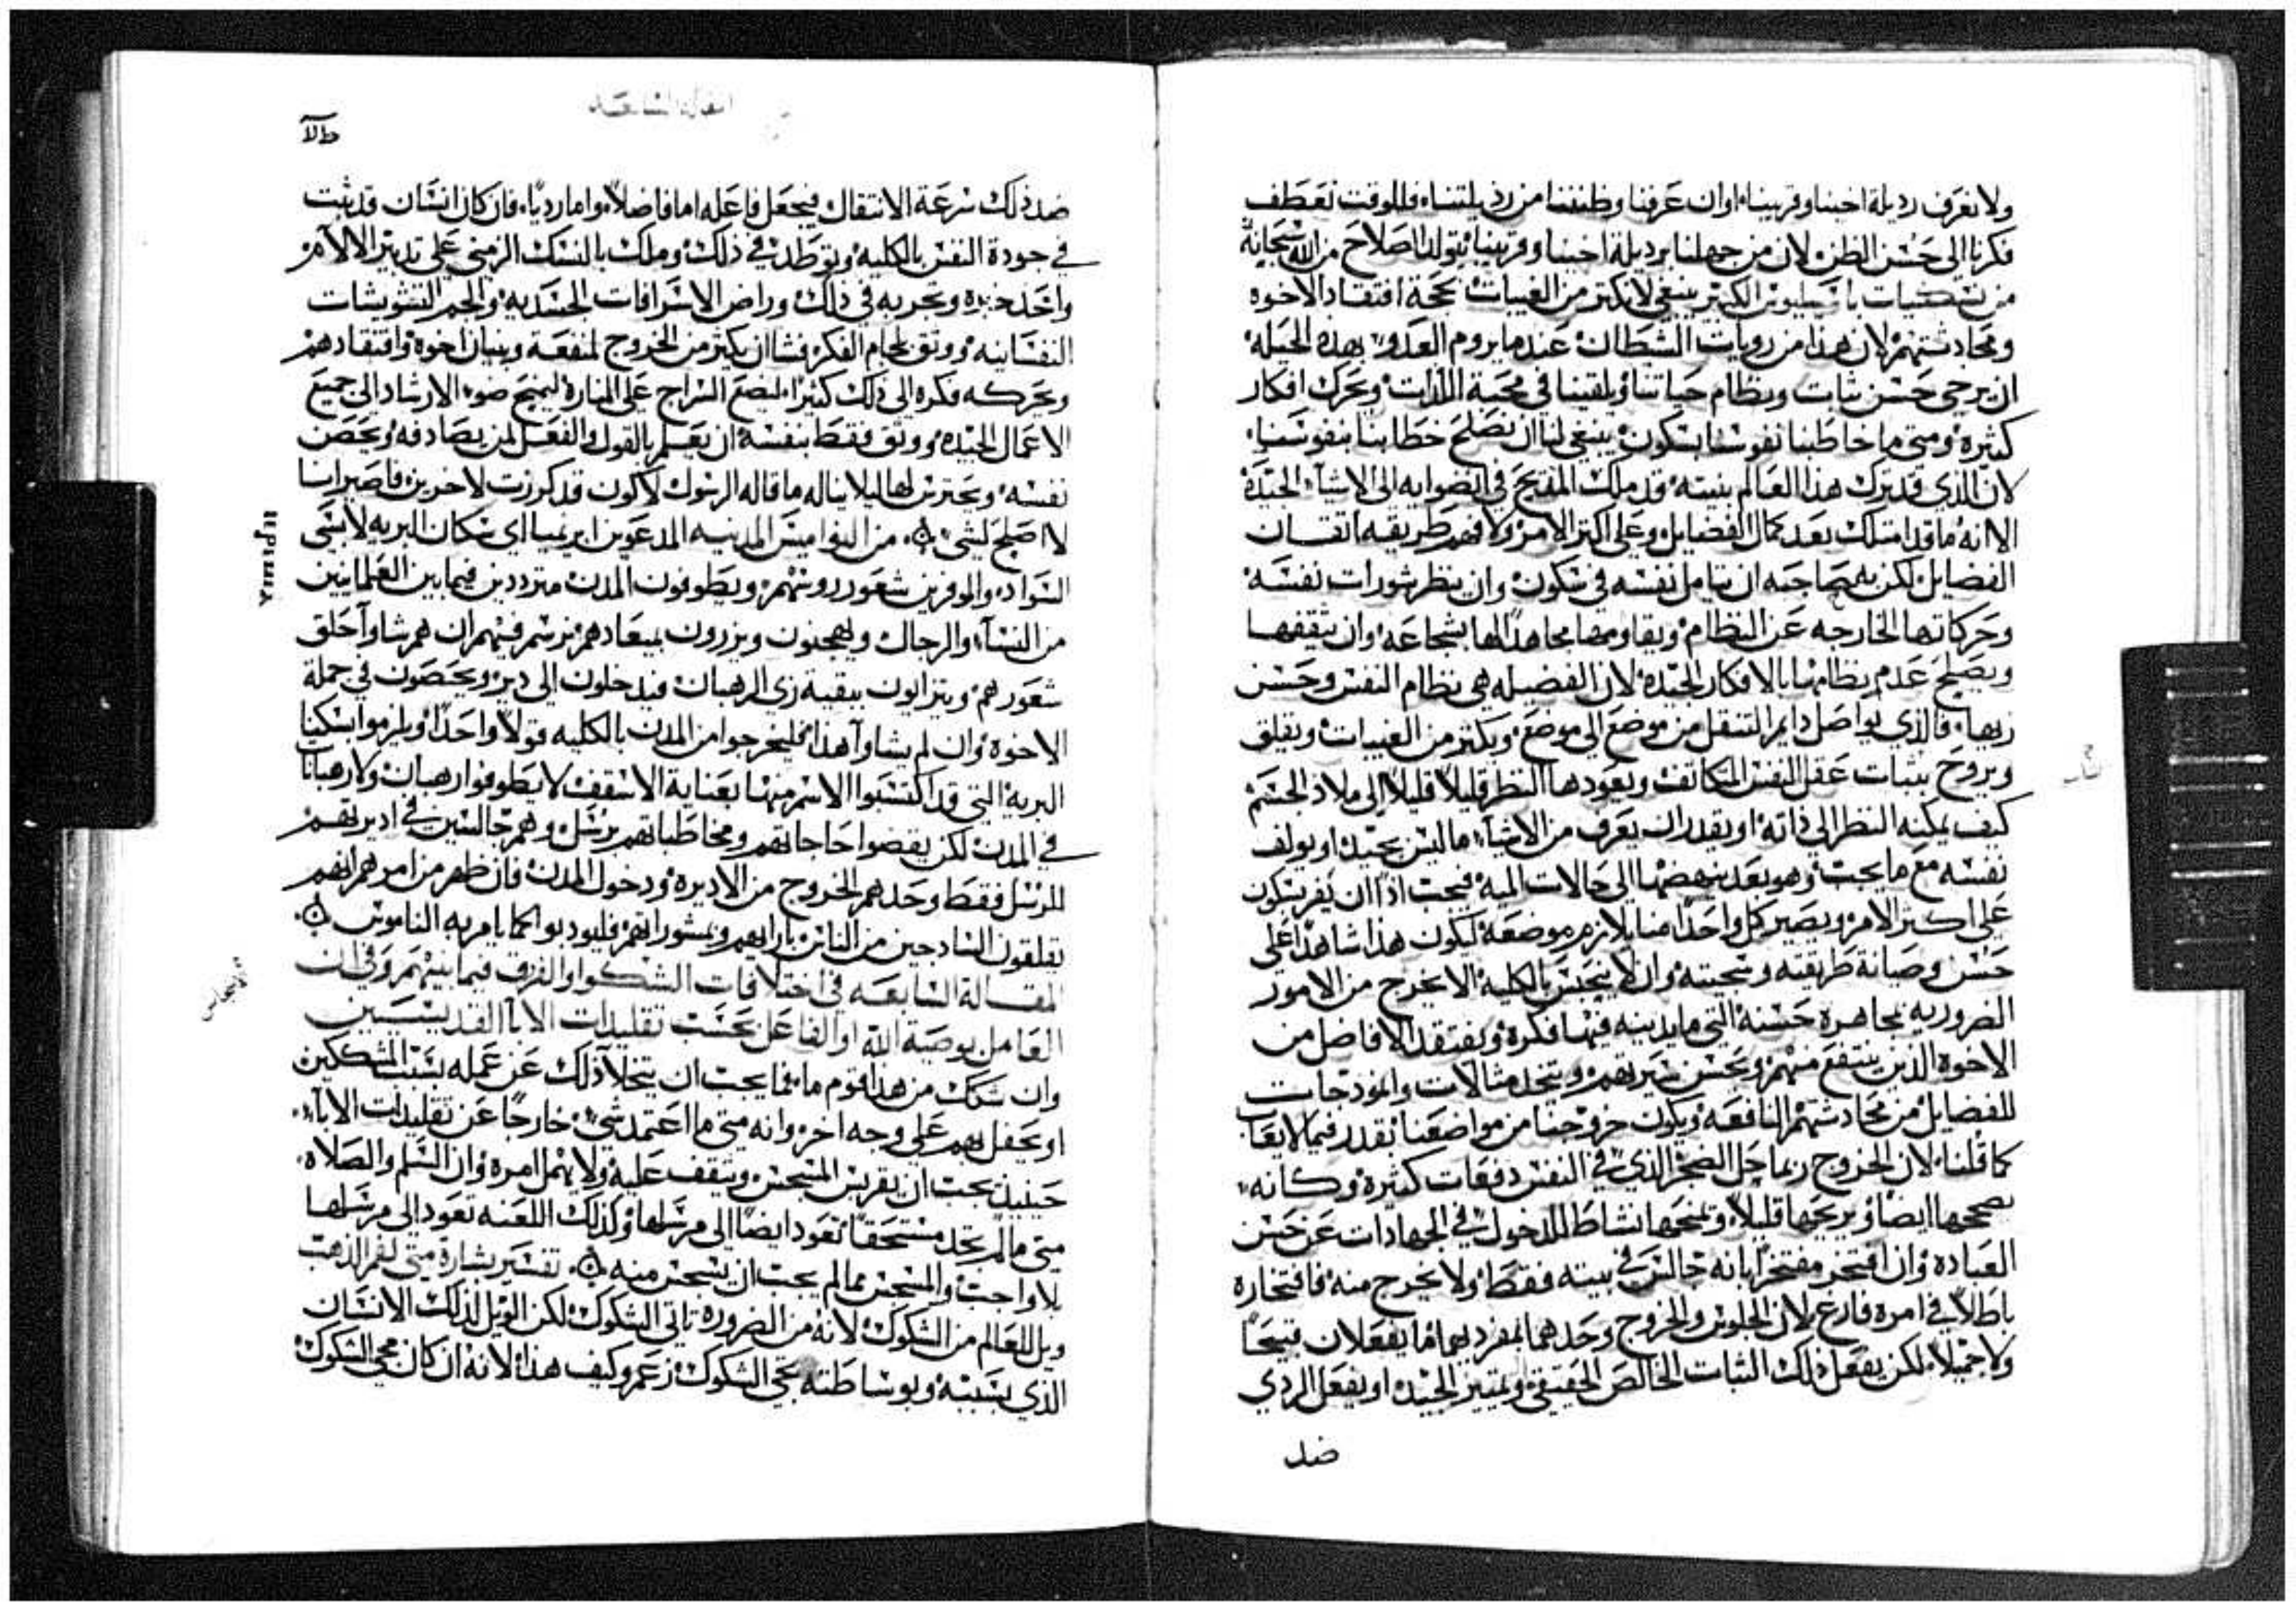 ولا نعرف رديلة اخينا وقريبنا، او ان عرفنا وظننا من رذيلتنا، فللوقت نعطف
فكرنا الى حسن الظن، لان من جهلنا برديلة اخينا وقريبنا يتولد الصلاح من الله سبحانه
من نسكيات باسيليوس الكبير ينبغي لا نكتر من الغيبات بحجة افتقاد الاخوه
ومحادثتهم لان هذا من رويات الشيطان عندما يروم العدو بهذه الحيله
ان يرخي حسن ثبات ونظام حياتنا ويلقينا في محبة اللذات ويحرك افكار
كثيرة ومتى ما خاطبنا نفوسنا بسكون ينبغي لنا ان نصلح خطابنا بنفوسنا،
لان الذي قد ترك هذا العالم بنيته قد ملك المديح في انضوايه الى الاشيآء الجيدة
الا انه ما قد امتلك بعد كمال الفضايل وعلى اكتر الامر ولا فهم طريقه اتقان
الفضايل لكن به حاجه ان يتامل نفسه في سكون وان ينظر شورات نفسه
وحركاتها الخارجه عن النظام ويقاومها مجاهدًا لها بشجاعه وان يثقفها
ويصلح عدم نظامها بالافكار الجيدة لان الفضيله هي نظام النفس وحسن
زيها، فالذي يواصل دايم التنقل من موضع الى موضع ويكتر من الغيبات ويقلق
ويروح بثبات عقل النفس المتكاتف ويعودها النظر قليلاً قليلاً الى ملاذ الجسم
كيف يمكنه النظر الى ذاته او يقدر ان يعرف من الاشيآء ما ليس بجيد او يولف
نفسه مع ما يجب وهو بعد ينهضها الى حالات الميه فيجب اذًا ان يقر بسكون
على اكثر الامر ويصير كل واحدًا منا يلازم موضعه ليكون هذا شاهدًا على
حسن وصيانة طريقته وسجيته وان لا ينحبس بالكليه الا يخرج من الامور
الضروريه مجاهرة حسنه التي ما يدينه فيها فكره ويفتقد الافاضل من
الاخوة الذين ينتفع منهم وبحسن سيرتهم ويتخذ مثالات وانمودجات
للفضايل من محادثتهم النافعه ويكون خروجنا من مواضعنا بقدر فيما لا يعاب
كما قلنا، لان الخروج ربما حل الضجر الذي في النفس دفعات كثيرة وكانه
يصححها ايضًا ويريحها قليلاً ويمنحها نشاط للدخول في الجهادات عن حسن
العباده وان افتخر مفتخرًا بانه جالس في بيته فقط ولا يخرج منه فافتخاره
باطلاً في امره فارغ لان الجلوس والخروج وحدهما بمفردهما ما يفعلان قبيحًا
ولا جميلاً لكن يفعل ذلك الثبات الخالص الحقيقي وتمييز الجيده او يفعل الردي
ضد
المقالة السابعه
ضد ذلك سرعة الانتقال فيجعل فاعله اما فاضلاً واما رديًا، فان كان انسان قد ثبت
في جودة النفس بالكليه وتوطد في ذلك وملك بالنسك الزمني على تدبير الالامر
واخذ خبره وتجربه في ذلك وراض الاشرافات الجسديه والجم التشويشات
النفسانيه ووثق بلجام الفكر فشا ان يكثر من الخروج لمنفعة وبنيان اخوة وافتقادهم
ويحركه فكره الى ذلك كثيرًا ليضع السراج على المنارة ليمنح ضوء الارشاد الى جميع
الاعمال الجيده ووثق فقط بنفسه ان يعلم بالقول والفعل لمن يصادفه ويحصن
نفسه ويحترس لها ليلا يناله ما قاله الرسول لا اكون قد كرزت لاخرين فاصير انا
لا اصلح لشي ۞ من النواميس المدنيه المدعوين ايريميا اي سكان البريه لابسي
السواد والموفرين شعور روسهم ويطوفون المدن مترددين فيما بين العلمانيين
من النسآء والرجال ويهجنون ويزرون بميعادهم نرسم فيهم ان هم شاوآ حلق
شعورهم ويتزايون ببقية زي الرهبان فيدخلون الى دير ويحصون في جملة
الاخوة وان لم يشاوآ هذا فليخرجوا من المدن بالكليه قولاً واحدًا ويلزموا سكنا
البريه التي قد اكتسبوا الاسم منها بعناية الاسقف لا يطوفوا رهبان ولا رهبانات
في المدن لكن يقضوا حاجاتهم ومخاطباتهم برسل وهم جالسين في اديرتهم
للرسل فقط وحدهم الخروج من الاديره ودخول المدن فان ظهر من امرهم انهم
يقلقون السادجين من الناس بارايهم وبمشوراتهم فليودبوا كما يامر به الناموس ۞
المقالة السابعه في اختلافات الشكوك والفرق فيما بينهم وفي ان
العامل بوصية الله او الفاعل بحسب تقليدات الابآ القديسيين
وان شكك من هذا قوم ما، فما يجب ان يتخلا ذلك عن عمله بسبب المتشككين
او يحفل بهم على وجه اخر، وانه متى ما اعتمد شي خارجًا عن تقليدات الابآء
حينيذ يجب ان يقريس المنسجس ويتقف عليه ولا يهمل امره وان السلم والصلاه
متى ما لم تجد مستحقًا تعود ايضًا الى مرسلها وكذلك اللعنه تعود الى مرسلها
بلا واجب والمنسجس مما لم يجب ان ينسجس منه ۞ تفسير بشارة متى لفم الذهب
ويل للعالم من الشكوك لانه من الضروره تاتي الشكوك لكن الويل لذلك الانسان
الذي بسببه وبوساطته تجي الشكوك زعم وكيف هذا لانه ان كان مجي الشكوك